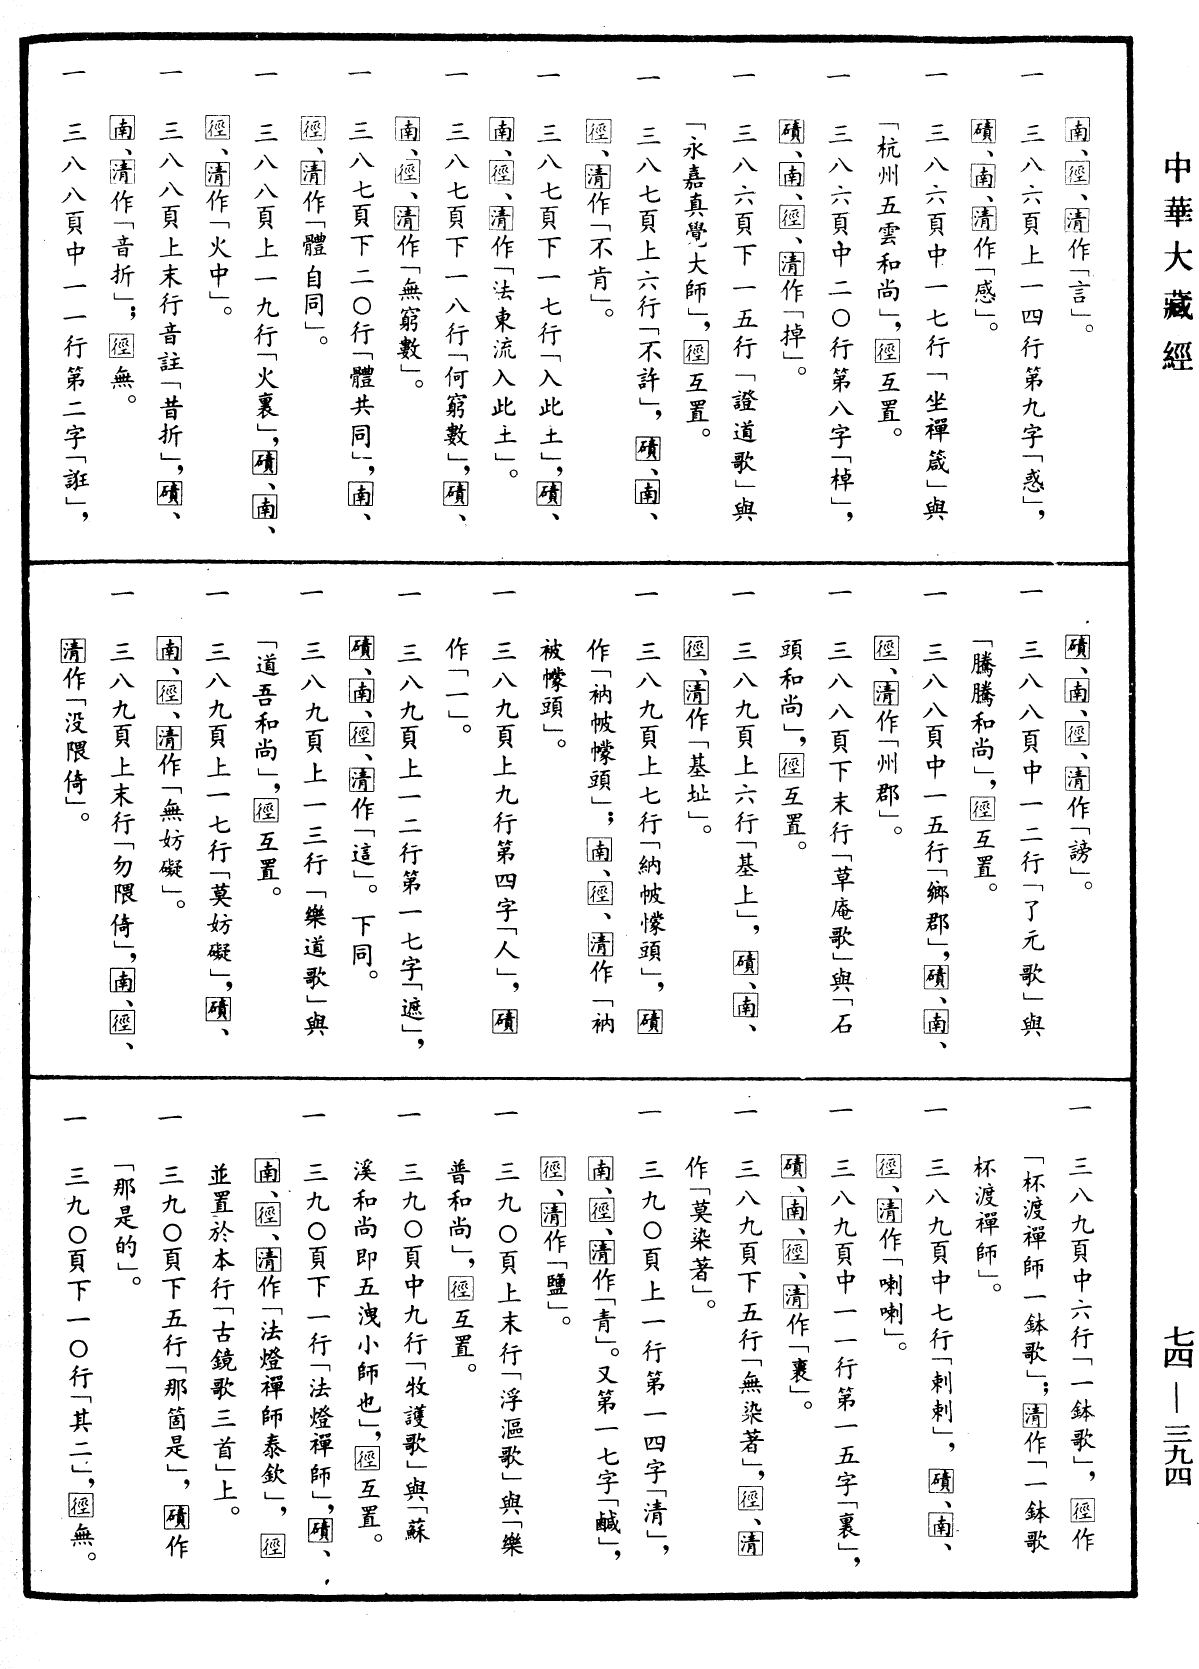 中華大藏經
七四—三九四
南、徑、清作「言」。
一 三八六頁上一四行第九字「惑」，
磧、南、清作「感」。
一 三八六頁中一七行「坐禪箴」與
「杭州五雲和尚」，徑互置。
一 三八六頁中二〇行第八字「棹」，
磧、南、徑、清作「掉」。
一 三八六頁下一五行「證道歌」與
「永嘉真覺大師」，徑互置。
一 三八七頁上六行「不許」，磧、南、
徑、清作「不肯」。
一 三八七頁下一七行「入此土」，磧、
南、徑、清作「法東流入此土」。
一 三八七頁下一八行「何窮數」，磧、
南、徑、清作「無窮數」。
一 三八七頁下二〇行「體共同」，南、
徑、清作「體自同」。
一 三八八頁上一九行「火裏」，磧、南、
徑、清作「火中」。
一 三八八頁上末行音註「昔折」，磧、
南、清作「音折」；徑無。
一 三八八頁中一一行第二字「誑」，
磧、南、徑、清作「謗」。
一 三八八頁中一二行「了元歌」與
「騰騰和尚」，徑互置。
一 三八八頁中一五行「鄉郡」，磧、南、
徑、清作「州郡」。
一 三八八頁下末行「草庵歌」與「石
頭和尚」，徑互置。
一 三八九頁上六行「基上」，磧、南、
徑、清作「基址」。
一 三八九頁上七行「納帔懞頭」，磧
作「衲帔幪頭」；南、徑、清作「衲
被幪頭」。
一 三八九頁上九行第四字「人」，磧
作「一」。
一 三八九頁上一二行第一七字「遮」，
磧、南、徑、清作「這」。下同。
一 三八九頁上一三行「樂道歌」與
「道吾和尚」，徑互置。
一 三八九頁上一七行「莫妨礙」，磧、
南、徑、清作「無妨礙」。
一 三八九頁上末行「勿隈倚」，南、徑、
清作「没隈倚」。
一 三八九頁中六行「一鉢歌」，徑作
「杯渡禪師一鉢歌」；清作「一鉢歌
杯渡禪師」。
一 三八九頁中七行「剌剌」，磧、南、
徑、清作「喇喇」。
一 三八九頁中一一行第一五字「裏」，
磧、南、徑、清作「裹」。
一 三八九頁下五行「無染著」，徑、清
作「莫染著」。
一 三九〇頁上一行第一四字「清」，
南、徑、清作「青」。又第一七字「鹹」，
徑、清作「鹽」。
一 三九〇頁上末行「浮漚歌」與「樂
普和尚」，徑互置。
一 三九〇頁中九行「牧護歌」與「蘇
溪和尚即五洩小師也」，徑互置。
一 三九〇頁下一行「法燈禪師」，磧、
南、徑、清作「法燈禪師泰欽」，徑
並置於本行「古鏡歌三首」上。
一 三九〇頁下五行「那箇是」，磧作
「那是的」。
一 三九〇頁下一〇行「其二」，徑無。